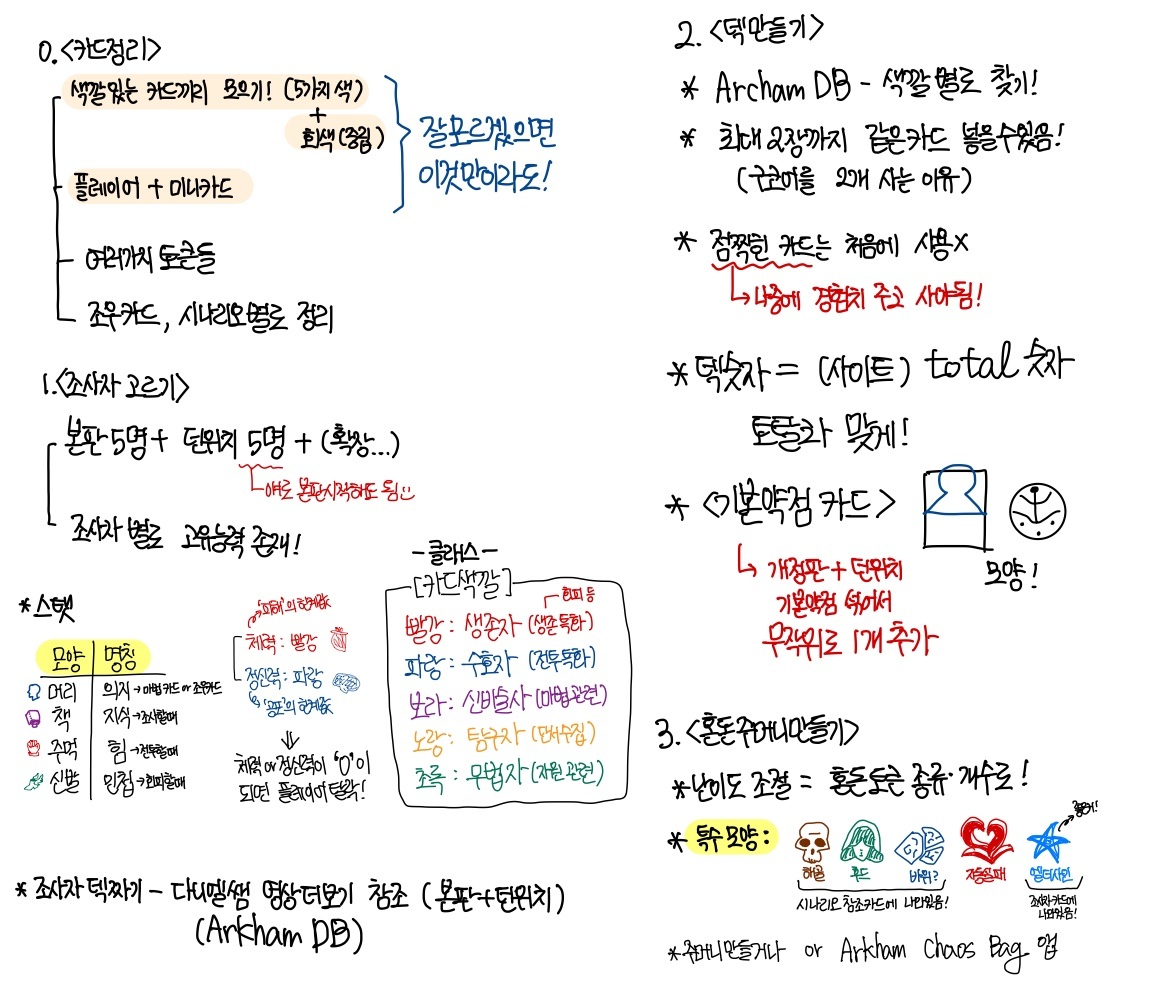 0. <카드정리>
색깔있는 카드끼리 모으기! (5가지 색)
+
회색(중립)
플레이어 + 미니카드
잘모르겠으면
이것만이라도!
여러가지 토큰들
조우카드, 시나리오별로 정리
1. <조사자 고르기>
본판 5명 + 던위치 5명 + (확장...)
얘로 본판시작해도 됨
조사자 별로 고유능력 존재!
*스텟
모양 명칭
머리 의지→마법카드 or 조우카드
책 지식→조사할때
주먹 힘→전투할때
신발 민첩→회피할때
'피해'의 한계값
체력 : 빨강
정신력 : 파랑
'공포'의 한계값
체력 or 정신력이 '0'이
되면 플레이어 탈락!
- 클래스 -
[카드색깔]
회피 등
빨강 : 생존자 (생존특화)
파랑 : 수호자 (전투특화)
보라 : 신비술사 (마법관련)
노랑 : 탐구자 (단서수집)
초록 : 무법자 (자원 관련)
* 조사자 덱짜기 - 다니엘쌤 영상더보기 참조 (본판+던위치)
(Arkham DB)
2. <덱만들기>
* Archam DB - 색깔별로 찾기!
* 최대 2장까지 같은카드 넣을수있음!
(구코어를 2개 사는 이유)
* 점찍힌 카드는 처음에 사용X
나중에 경험치 주고 사야됨!
* 덱숫자 = (사이트) total 숫자
토탈과 맞게!
* <기본약점 카드>
모양!
개정판 + 던위치
기본약점 섞어서
무작위로 1개 추가
3. <혼돈주머니만들기>
*난이도 조절 = 혼돈토큰 종류·개수로!
* 특수 모양 :
해골 후드 바위? 자동실패 엘더사인
시나리오 참조카드에 나와있음!
조사자카드에
나와있음!
*주머니만들거나 or Arkham Chaos Bag 앱